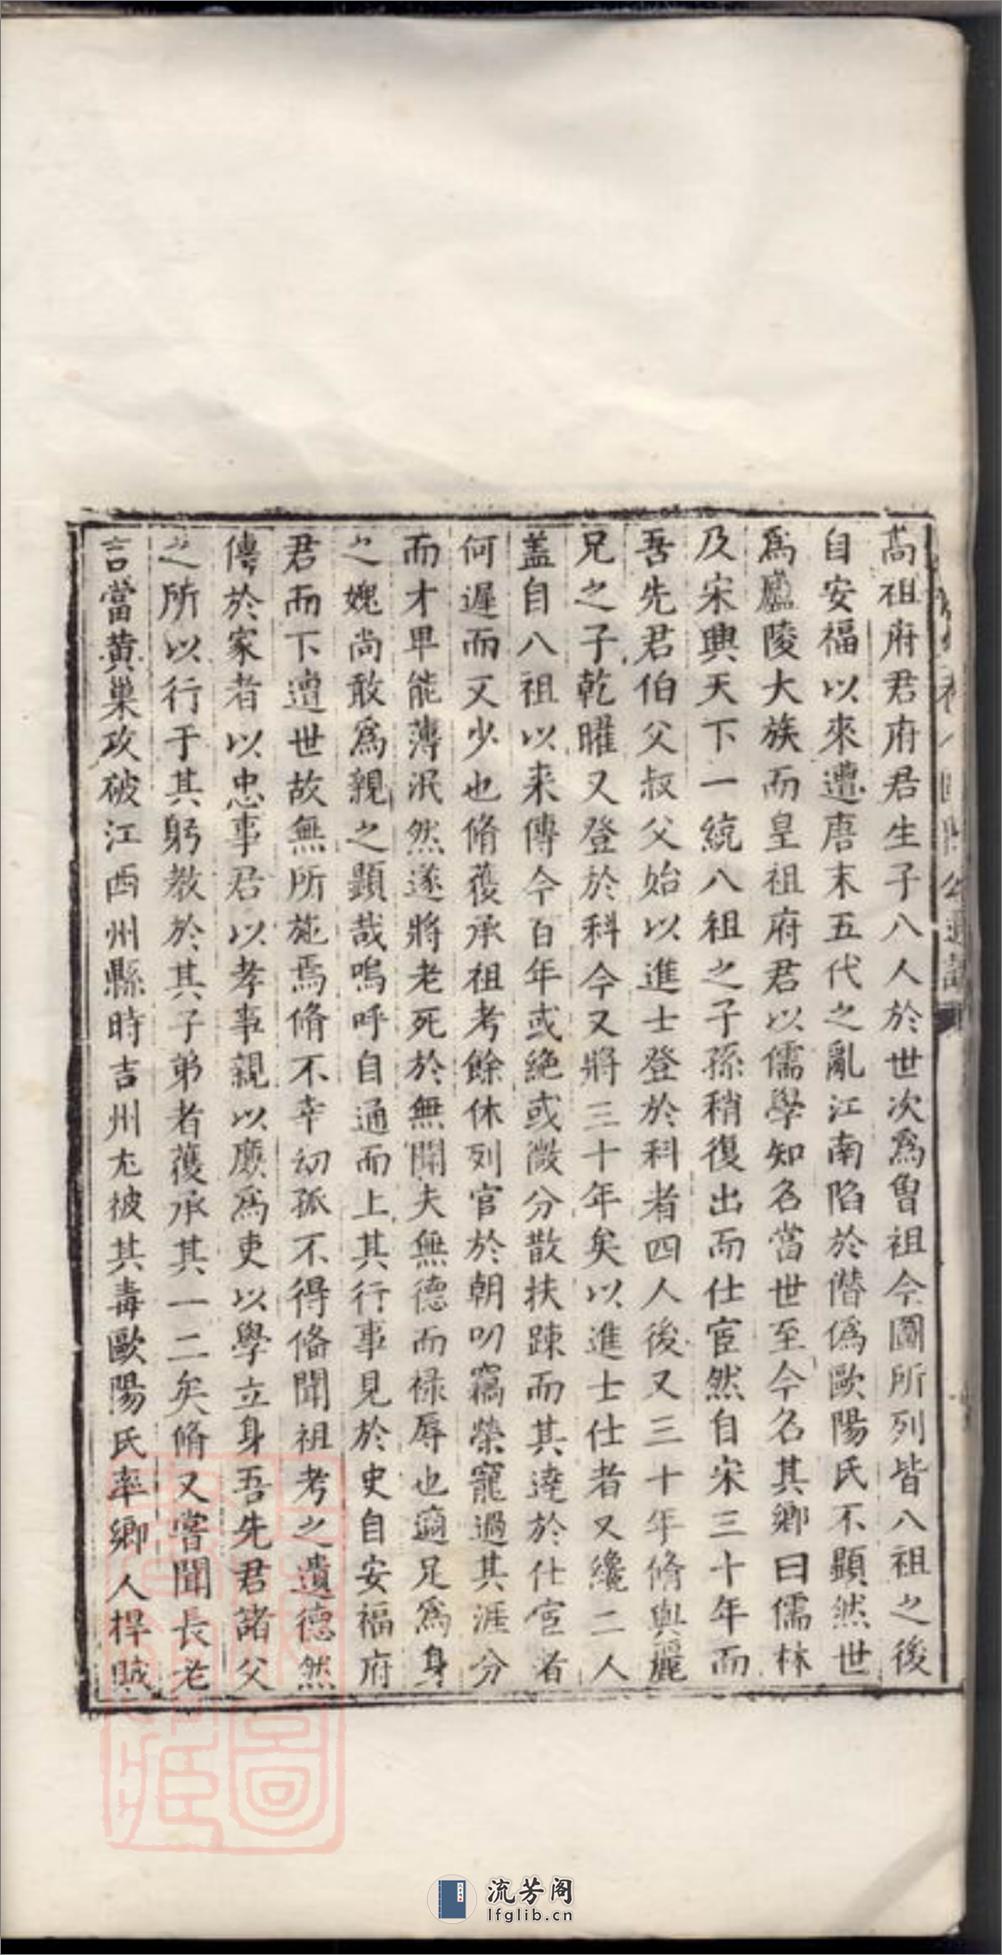 高祖府君府君生子八人於世次爲曾祖今圖所列皆八祖之後
自安福以來遭唐末五代之亂江南陷於僭僞歐陽氏不顯然世
爲廬陵大族而皇祖府君以儒學知名當世至今名其鄉曰儒林
及宋興天下一統八祖之子孫稍復出而仕宦然自宋三十年而
吾先君伯父叔父始以進士登於科者四人後又三十年脩與麗
兄之子乾曜又登於科今又將三十年矣以進士仕者又纔二人
盖自八祖以来傳今百年或絶或微分散扶踈而其達於仕宦者
何遲而又少也脩獲承祖考餘休列官於朝叨竊榮寵過其涯分
而才卑能薄泯然遂將老死於無聞夫無德而禄辱也適足爲身
之媿尚敢爲親之顯哉嗚呼自通而上其行事見於史自安福府
君而下遭世故無所施焉脩不幸幼孤不得俻聞祖考之遺德然
傳於家者以忠事君以孝事親以廉爲吏以學立身吾先君諸父
之所以行于其躬教於其子弟者獲承其一二矣脩又嘗聞長老
言當黄巢攻破江西州縣時吉州尤被其毒歐陽氏率鄉人捍賊
流芳阁
lfglib.cn